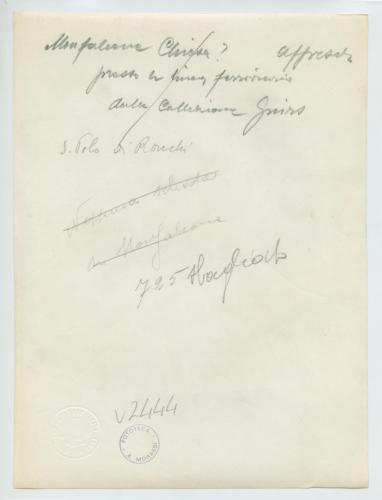 Monfalcone Chiesa? Affresco
presso la linea ferroviaria
dalla Collezione
S. Polo di Ronchi
Nessuna scheda
di Monfalcone
725 Stagliato
V2444
FOTOTECA
A. MORASSI